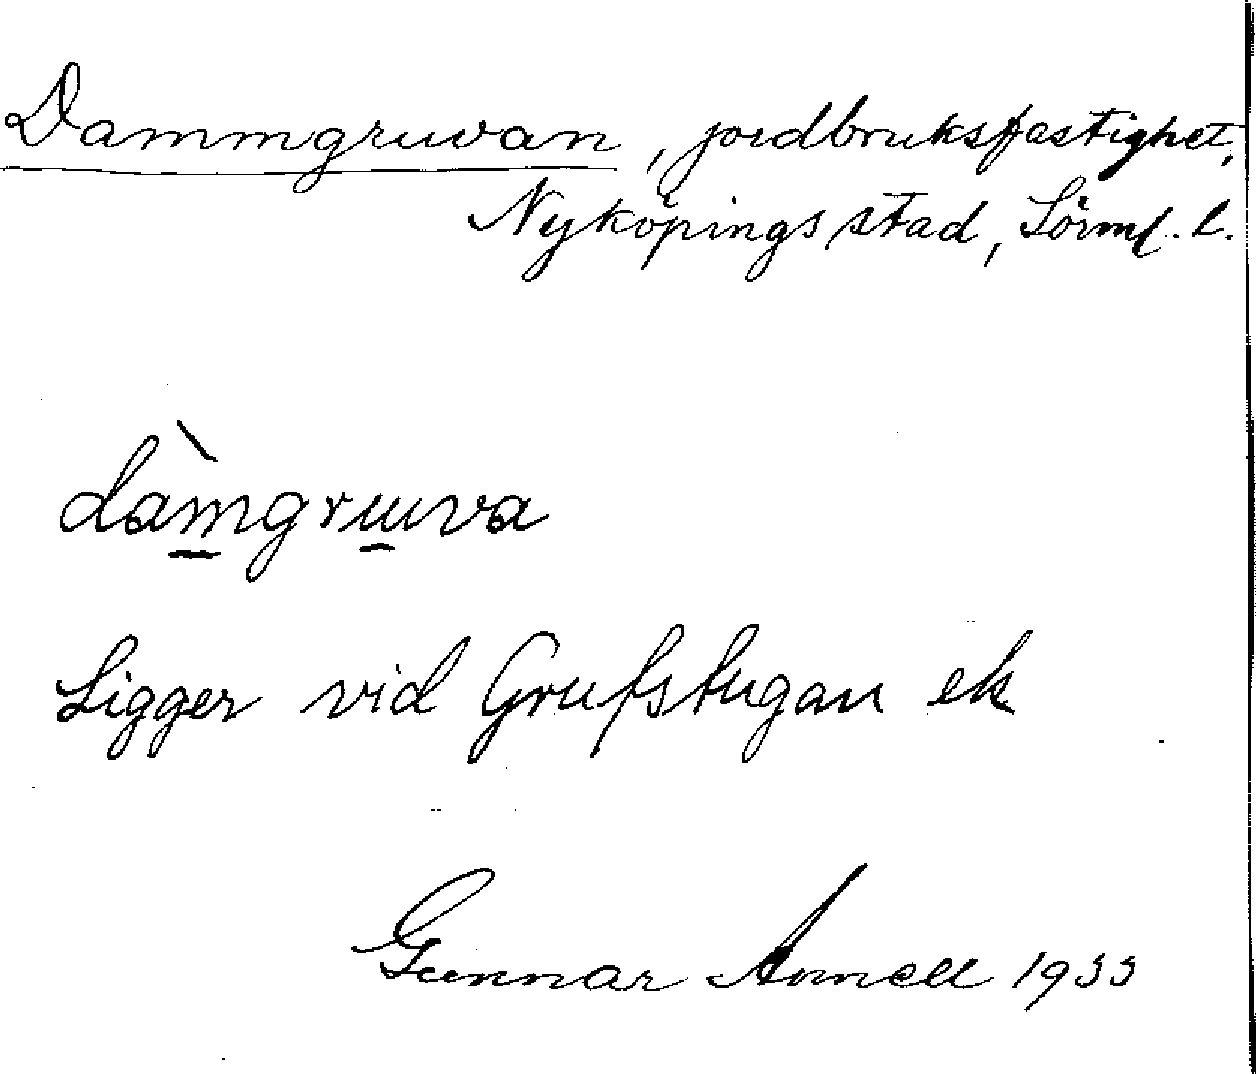 Dammgruvan, jordbruksfastighet,
Nyköpings stad, Sörml. l.
dàm̲gru̲va
Ligger vid Grufstugan ek
Gunnar Annell 1933